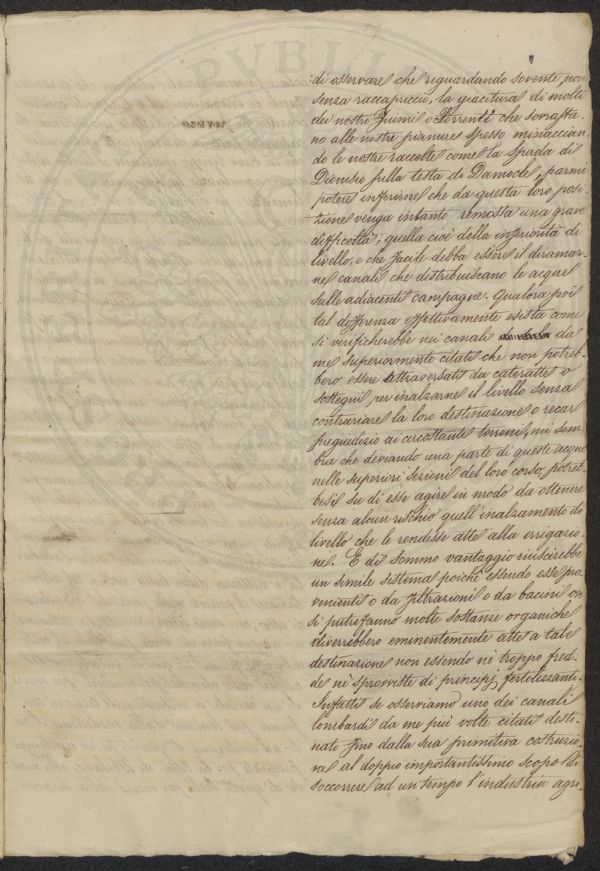 di osservare che riguardando sovente, non
senza raccapriccio, la giacitura di molti
dei nostri Fiumi o Torrenti che sovrasta-
no alle nostre pianure spesso minaccian-
do le nostre raccolte come la Spada di
Dionisio sulla testa di Damocle, parmi
potere inferirne che da questa loro posi-
zione venga intanto remossa una grave
difficoltà, quella cioè della inferiorità di
livello, e che facile debba essere il diramar-
ne canali che distribuiscano le acque
sulle adiacenti campagne. Qualora poi
tal differenza effettivamente esista come
si verificherebbe nei canali da
me superiormente citati che non potreb-
bero essere attraversati da cateratte o
sostegni per inalzarne il livello senza
contrariare la loro destinazione o recar
pregiudizio ai circostanti terreni, mi sem-
bra che deviando una parte di queste acque
nelle superiori sezioni del loro corso, potreb-
besi su di esse agire in modo da ottenere
senza alcun rischio quell'inalzamento di
livello che le rendesse atte alla irrigazio-
ne. E di sommo vantaggio riuscirebbe
un simile sistema poichè essendo esse pro-
venienti o da filtrazioni o da bacini ove
si putrefanno molte sostanze organiche
diverrebbero eminentemente atte a tale
destinazione non essendo nè troppo fred-
de nè sprovviste di principj fertilizzanti.
Infatti se osserviamo uno dei canali
lombardi da me più volte citati desti-
nato fino dalla sua primitiva costruzio-
ne al doppio importantissimo scopo di
soccorrere ad un tempo l'industria agri-
PVBLI